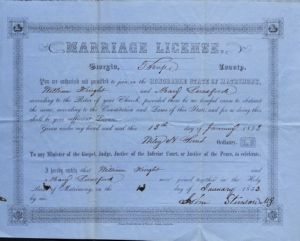 MARRIAGE LICENSE.
Georgia, County.
You are authorized and permitted to join in the HONORABLE STATE OF MATRIMONY,
William Knight and Mary Lunsford
according to the Rites of your Church, provided there be no lawful cause to obstruct
the same, according to the Constitution and Laws of this State, and for so doing this
shall be your sufficient License.
Given under my hand and seal this 10th day of January 1853
Ordinary. L.S.
To any Minister of the Gospel, Judge, Justice of the Inferior Court, or Justice of the Peace, to celebrate.
I hereby certify that William Knight and
Mary Lunsford were joined together in the Holy
Bands of Matrimony, on the day of January 1853
by me.